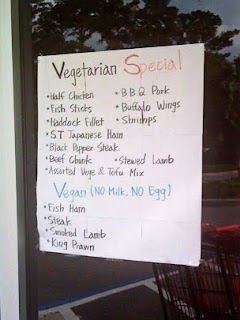 Vegetarian Special
• Half Chicken • B.B.Q Pork
• Fish Sticks • Buffalo Wings
• Haddock Fillet • Shrimps
• S.T Japanese Ham
• Black Pepper Steak
• Beef Chunk • Stewed Lamb
• Assorted Vege & Tofu Mix
Vegan (NO Milk, NO Egg)
• Fish Ham
• Steak
• Smoked Lamb
• King Prawn